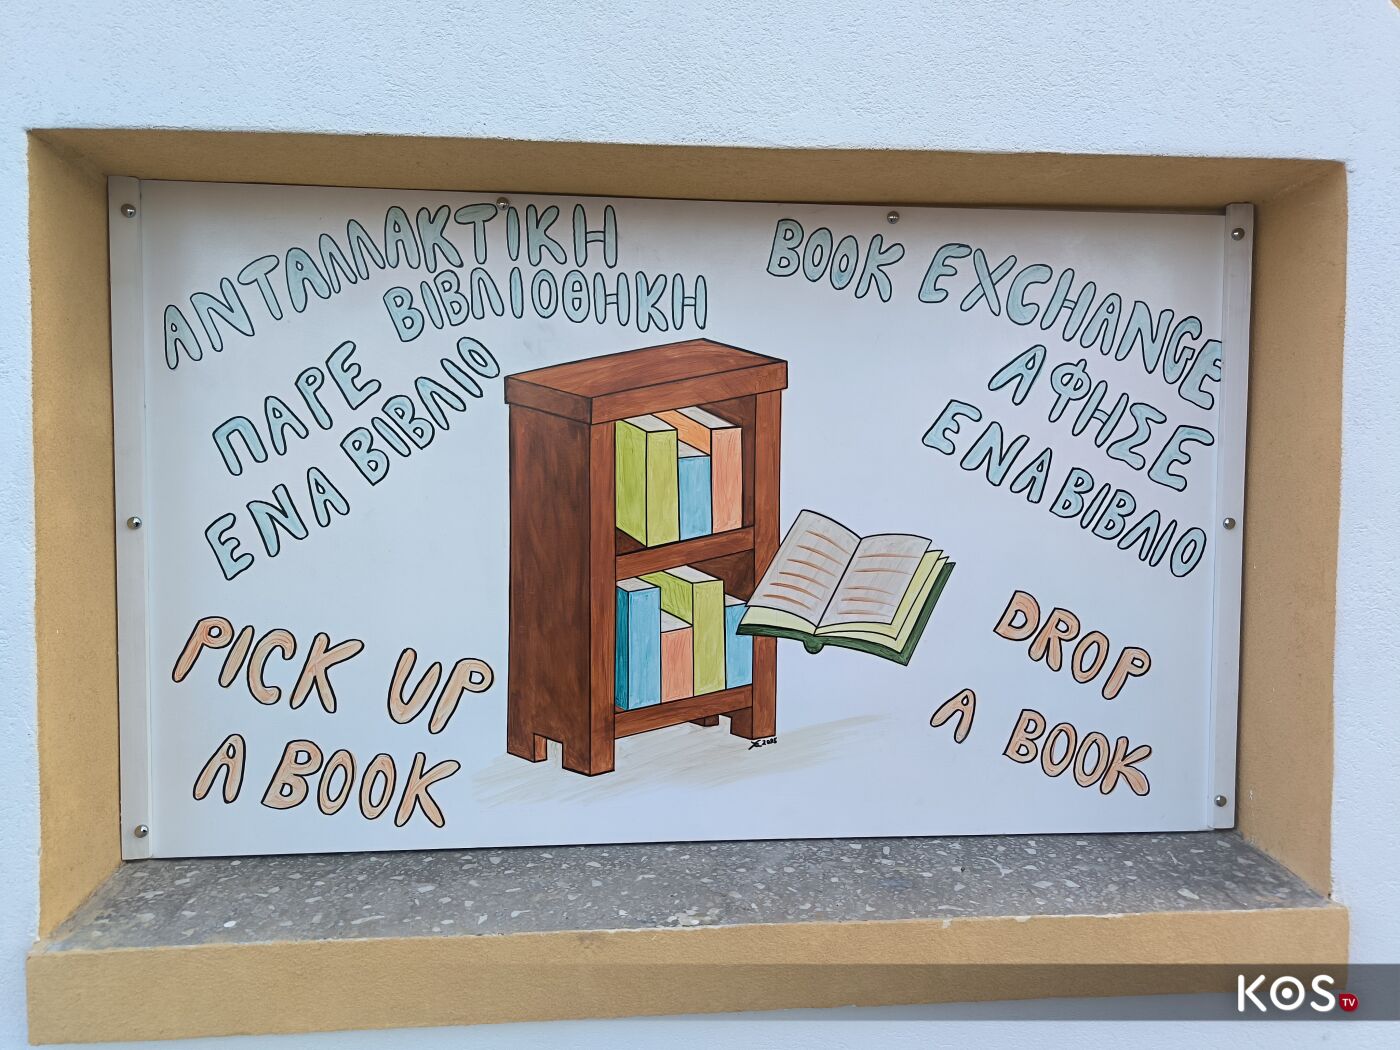 ΑΝΤΑΛΛΑΚΤΙΚΗ
ΒΙΒΛΙΟΘΗΚΗ
ΠΑΡΕ
ΕΝΑ ΒΙΒΛΙΟ
PICK UP
A BOOK
BOOK EXCHANGE
ΑΦΗΣΕ
ΕΝΑ ΒΙΒΛΙΟ
DROP
A BOOK
KOS TV